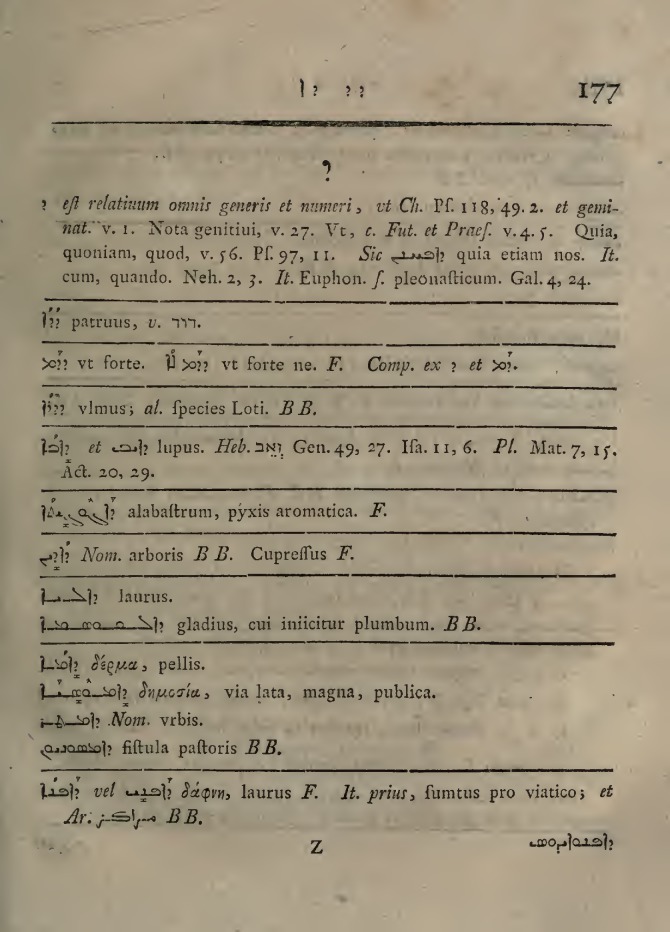 ܕܐ ܕܕ 177
ܕ
ܕ eſt relatiuum omnis generis et numeri, vt Ch. Pſ. 118, 49. 2. et gemi-
nat. v. 1. Nota genitiui, v. 27. Vt, c. Fut. et Praeſ. v. 4. 5. Quia,
quoniam, quod, v. 56. Pſ. 97, 11. Sic quia etiam nos. It.
cum, quando. Neh. 2, 3. It. Euphon. ſ. pleonaſticum. Gal. 4, 24.
ܕܕܐ patruus, v. דוד.
vt forte. vt forte ne. F. Comp. ex ܕ et
vlmus; al. ſpecies Loti. B B.
ܕܐܒܐ et ܕܐܝܒ lupus. Heb. זְאֵב Gen. 49, 27. Iſa. 11, 6. Pl. Mat. 7, 15.
Act. 20, 29.
alabaſtrum, pyxis aromatica. F.
Nom. arboris B B. Cupreſſus F.
laurus.
gladius, cui iniicitur plumbum. B B.
δέρμα, pellis.
δημοσία, via lata, magna, publica.
Nom. vrbis.
fiſtula paſtoris B B.
vel δάφνη, laurus F. It. prius, ſumtus pro viatico; et
Ar. B B.
Z